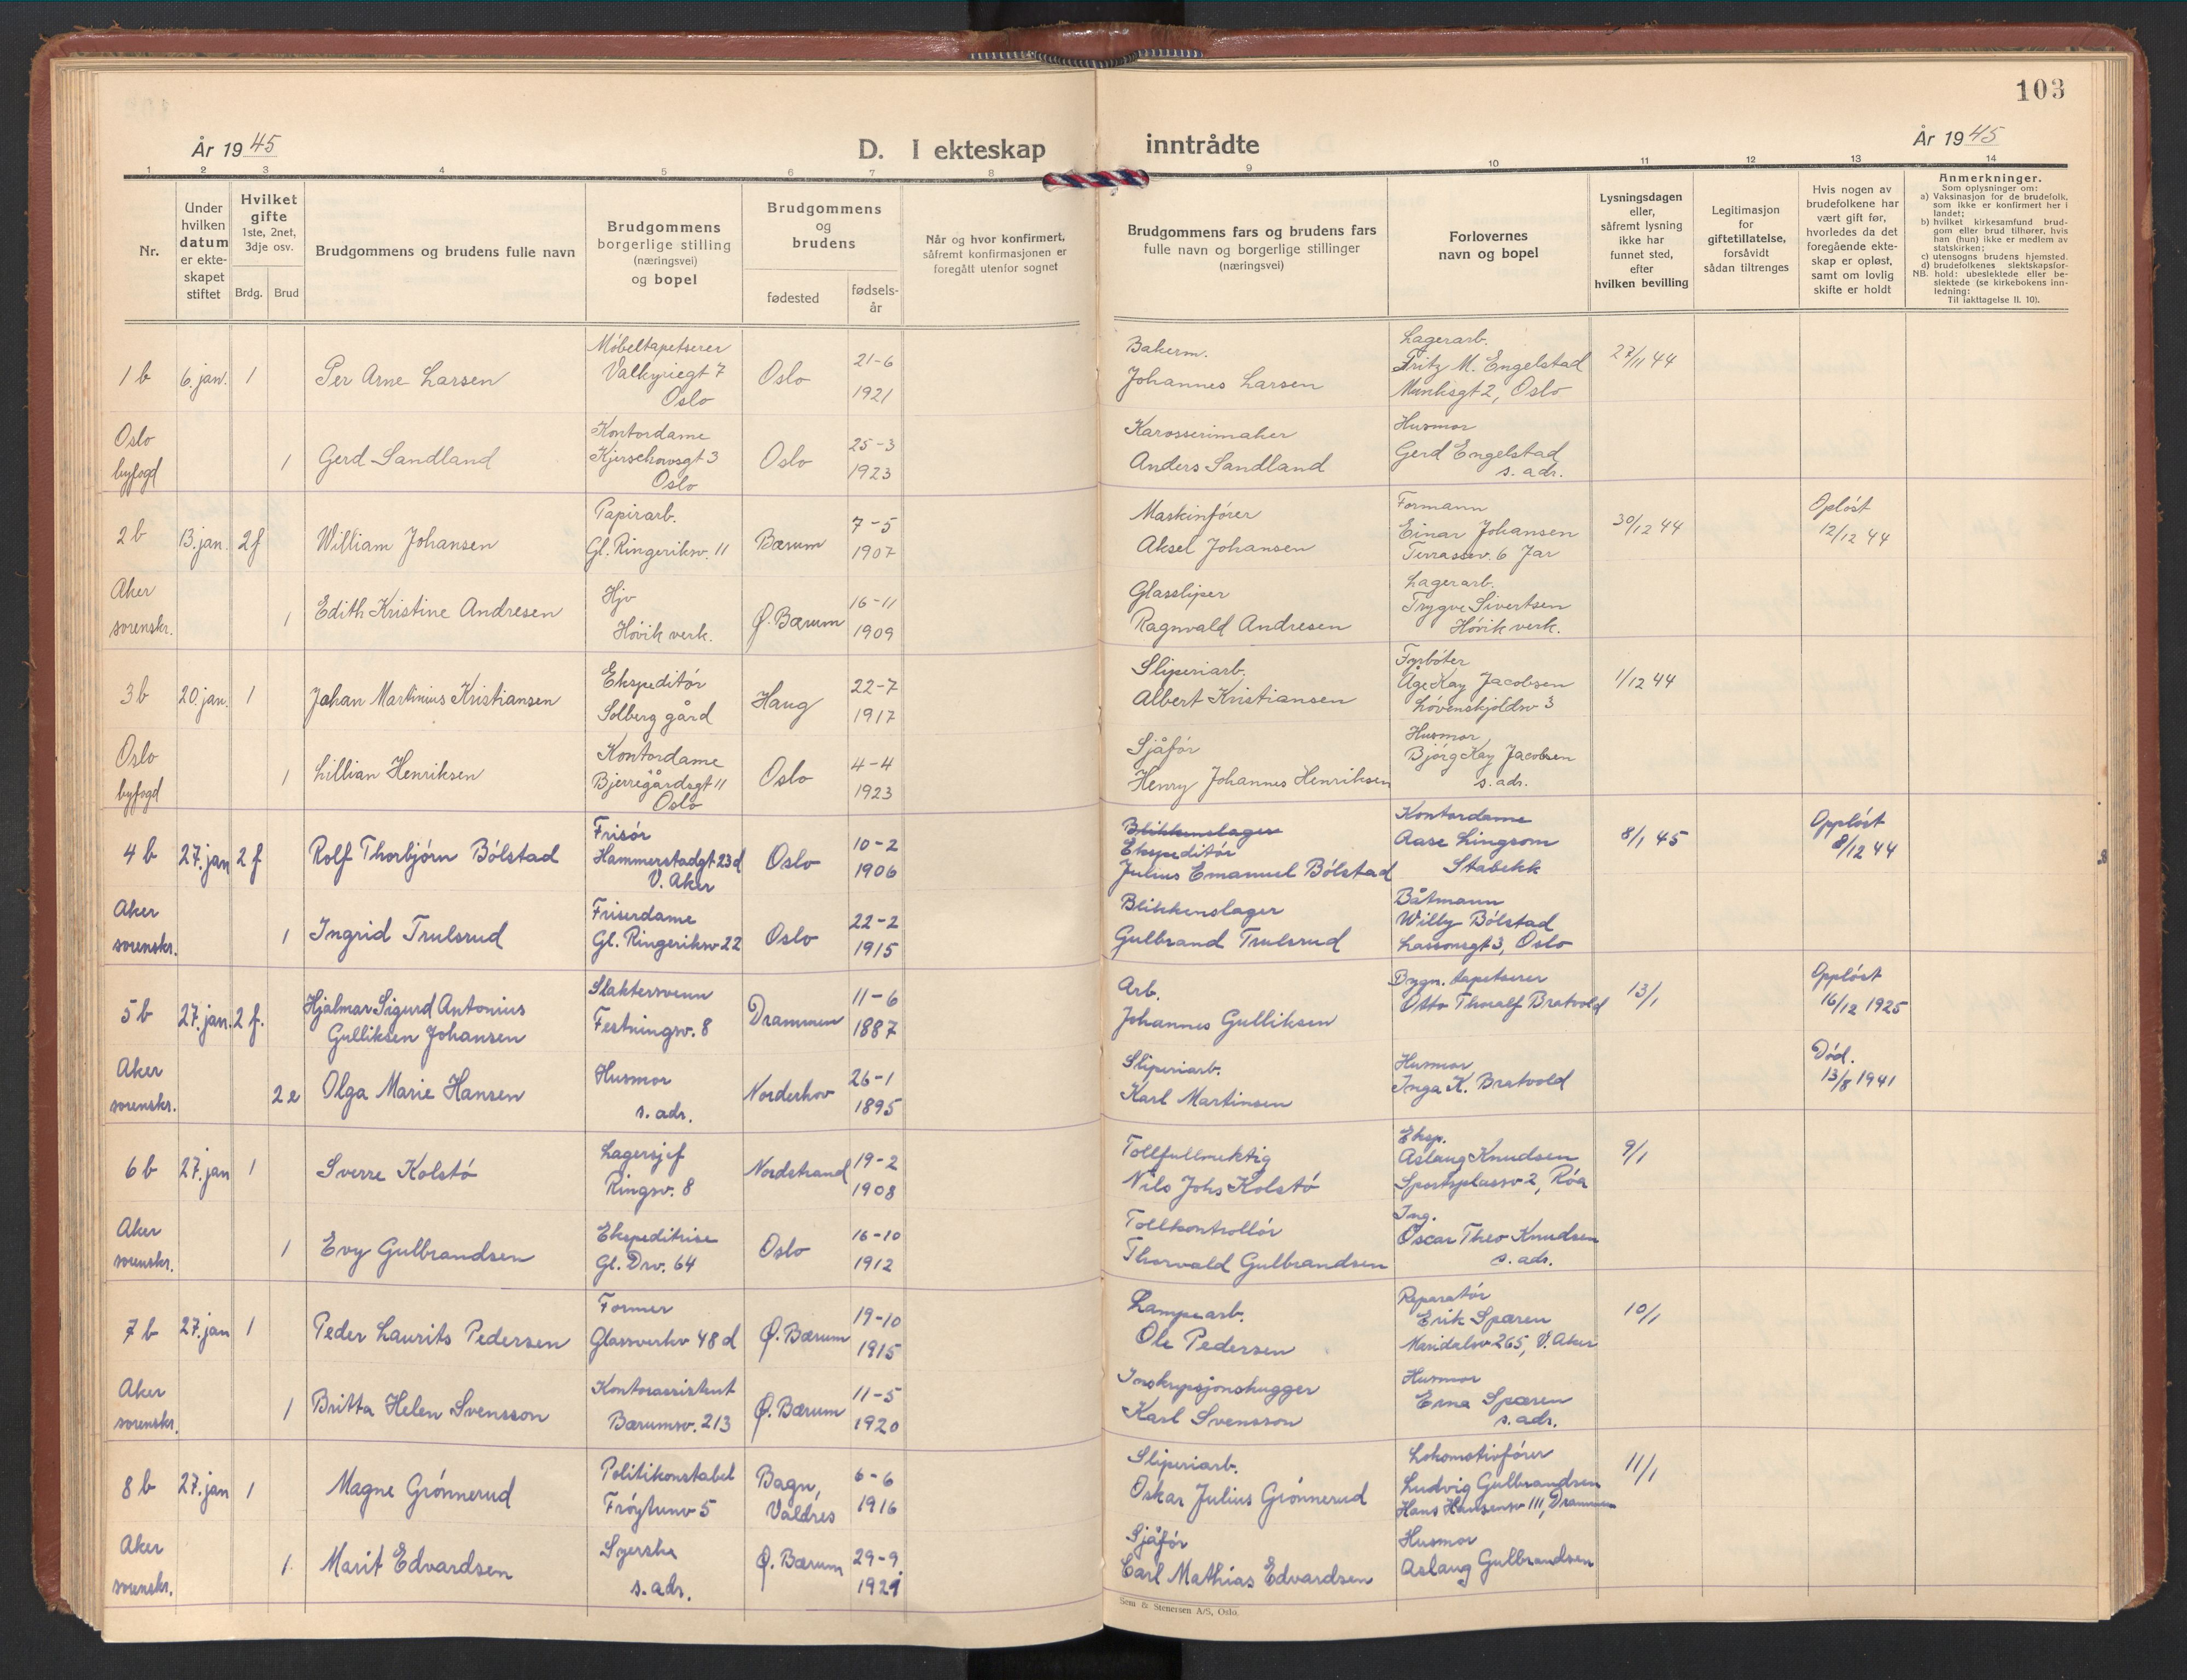 103
År 1945
D. I ekteskap inntrådte
År 1945
1 2 3 4 5 6 7 8 9 10 11 12 13 14
Nr.
Under
hvilken
datum
er ekte-
skapet
stiftet
Hvilket
gifte
1ste, 2net,
3dje osv.
Brdg. Brud
Brudgommens og brudens fulle navn
Brudgommens
borgerlige stilling
(næringsvei)
og bopel
Brudgommens
og
brudens
fødested
fødsels-
år
Når og hvor konfirmert,
såfremt konfirmasjonen er
foregått utenfor sognet
Brudgommens fars og brudens fars
fulle navn og borgerlige stillinger
(næringsvei)
Forlovernes
navn og bopel
Lysningsdagen
eller,
såfremt lysning
ikke har
funnet sted,
efter
hvilken bevilling
Legitimasjon
for
giftetillatelse,
forsåvidt
sådan tiltrenges
Hvis nogen av
brudefolkene har
vært gift før,
hvorledes da det
foregående ekte-
skap er opløst,
samt om lovlig
skifte er holdt
Anmerkninger.
Som oplysninger om:
a) Vaksinasjon for de brudefolk,
som ikke er konfirmert her i
landet;
b) hvilket kirkesamfund brud-
gom eller brud tilhører, hvis
han (hun) ikke er medlem av
statskirken;
c) utensogns brudens hjemsted.
d) brudefolkenes slektskapsfor-
NB. hold: ubeslektede eller be-
slektede (se kirkebokens inn-
ledning:
Til iakttagelse II. 10).
1 b 6. jan. 1 Per Arne Larsen
Møbeltapetserer
Valkyriegt 7
Oslo
Oslo
21-6
1921
Bakerm.
Johannes Larsen
Lagerarb.
Fritz M. Engelstad
Munksgt 2, Oslo
27/11 44
Oslo
byfogd
1 Gerd Sandland
Kontordame
Kjerschowsgt 3
Oslo
Oslo
25-3
1923
Karosserimaker
Anders Sandland
Husmor
Gerd Engelstad
s. adr.
2 b 13. jan. 2 f William Johansen
Papirarb.
Gl. Ringeriksv. 11
Bærum
7-5
1907
Maskinfører
Aksel Johansen
Formann
Einar Johansen
Terrassev. 6 Jar
30/12 44
Opløst
12/12 44
Aker
sorenskr.
1 Edith Kristine Andresen
Hjv
Høvik verk.
Ø. Bærum
16-11
1909
Glassliper
Ragnvald Andresen
Lagerarb.
Trygve Sivertsen
Høvik verk.
3 b 20. jan. 1 Johan Martinius Kristiansen
Ekspeditør
Solberg gård
Haug
22-7
1917
Sliperiarb.
Albert Kristiansen
Fyrbøter
Åge Kay Jacobsen
Løvenskjoldsv 3
1/12 44
Oslo
byfogd
1 Lillian Henriksen
Kontordame
Bjerregårdsgt 11
Oslo
Oslo
4-4
1923
Sjåfør
Henry Johannes Henriksen
Husmor
Bjørg Kay Jacobsen
s. adr.
4 b 27. jan 2 f Rolf Thorbjørn Bølstad
Frisør
Hammerstadgt 23 d
V. Aker
Oslo
10-2
1906
Blikkenslager
Ekspeditør
Julius Emanuel Bølstad
Kontordame
Aase Lingsom
Stabekk
8/1 45
Oppløst
8/12 44
Aker
sorenskr.
1 Ingrid Trulsrud
Friserdame
Gl. Ringeriksv 22
Oslo
22-2
1915
Blikkenslager
Gulbrand Trulsrud
Båtmann
Willy Bølstad
Lassonsgt 3, Oslo
5 b 27. jan. 2 f. Hjalmar Sigurd Antonius
Gulliksen Johansen
Slaktersvenn
Festningsv. 8
Drammen
11-6
1887
Arb.
Johannes Gulliksen
Bygn. tapetserer
Otto Thoralf Bratvold
13/1
Oppløst
16/12 1925
Aker
sorenskr.
2 e Olga Marie Hansen
Husmor
s. adr.
Norderhov
26-1
1895
Sliperiarb.
Karl Martinsen
Husmor
Inga K. Bratvold
Død.
13/8 1941
6 b 27. jan 1 Sverre Kolstø
Lagersjef
Ringsv. 8
Nordstrand
19-2
1908
Tollfullmektig
Nils Johs Kolstø
Eksp.
Aslaug Knudsen
Sportsplassv 2, Røa
9/1
Aker
sorenskr.
1 Evy Gulbrandsen
Ekspeditrise
Gl. Drv. 64
Oslo
16-10
1912
Tollkontrollør
Thorvald Gulbrandsen
Ing.
Oscar Theo Knudsen
s. adr.
7 b 27. jan 1 Peder Laurits Pedersen
Former
Glassverkv 48 d
Ø. Bærum
19-10
1915
Lampearb.
Ole Pedersen
Reparatør
Erik Spæren
Maridalsv 265, V. Aker
10/1
Aker
sorenskr.
1 Britta Helen Svensson
Kontorassistent
Bærumsv. 213
Ø. Bærum
11-5
1920
Inskripsjonshugger
Karl Svensson
Husmor
Erna Spæren
s. adr.
8 b 27. jan 1 Magne Grønnerud
Politikonstabel
Frøytunv 5
Bagn,
Valdres
6-6
1916
Sliperiarb.
Oskar Julius Grønnerud
Lokomotivfører
Ludvig Gulbrandsen
Hans Hansensv 111, Drammen
11/1
Aker
sorenskr.
1. Marit Edvardsen
Syerske
s. adr.
Ø. Bærum
29-9
1921
Sjåfør
Carl Mathias Edvardsen
Husmor
Aslaug Gulbrandsen
Sem & Stenersen A/S, Oslo.